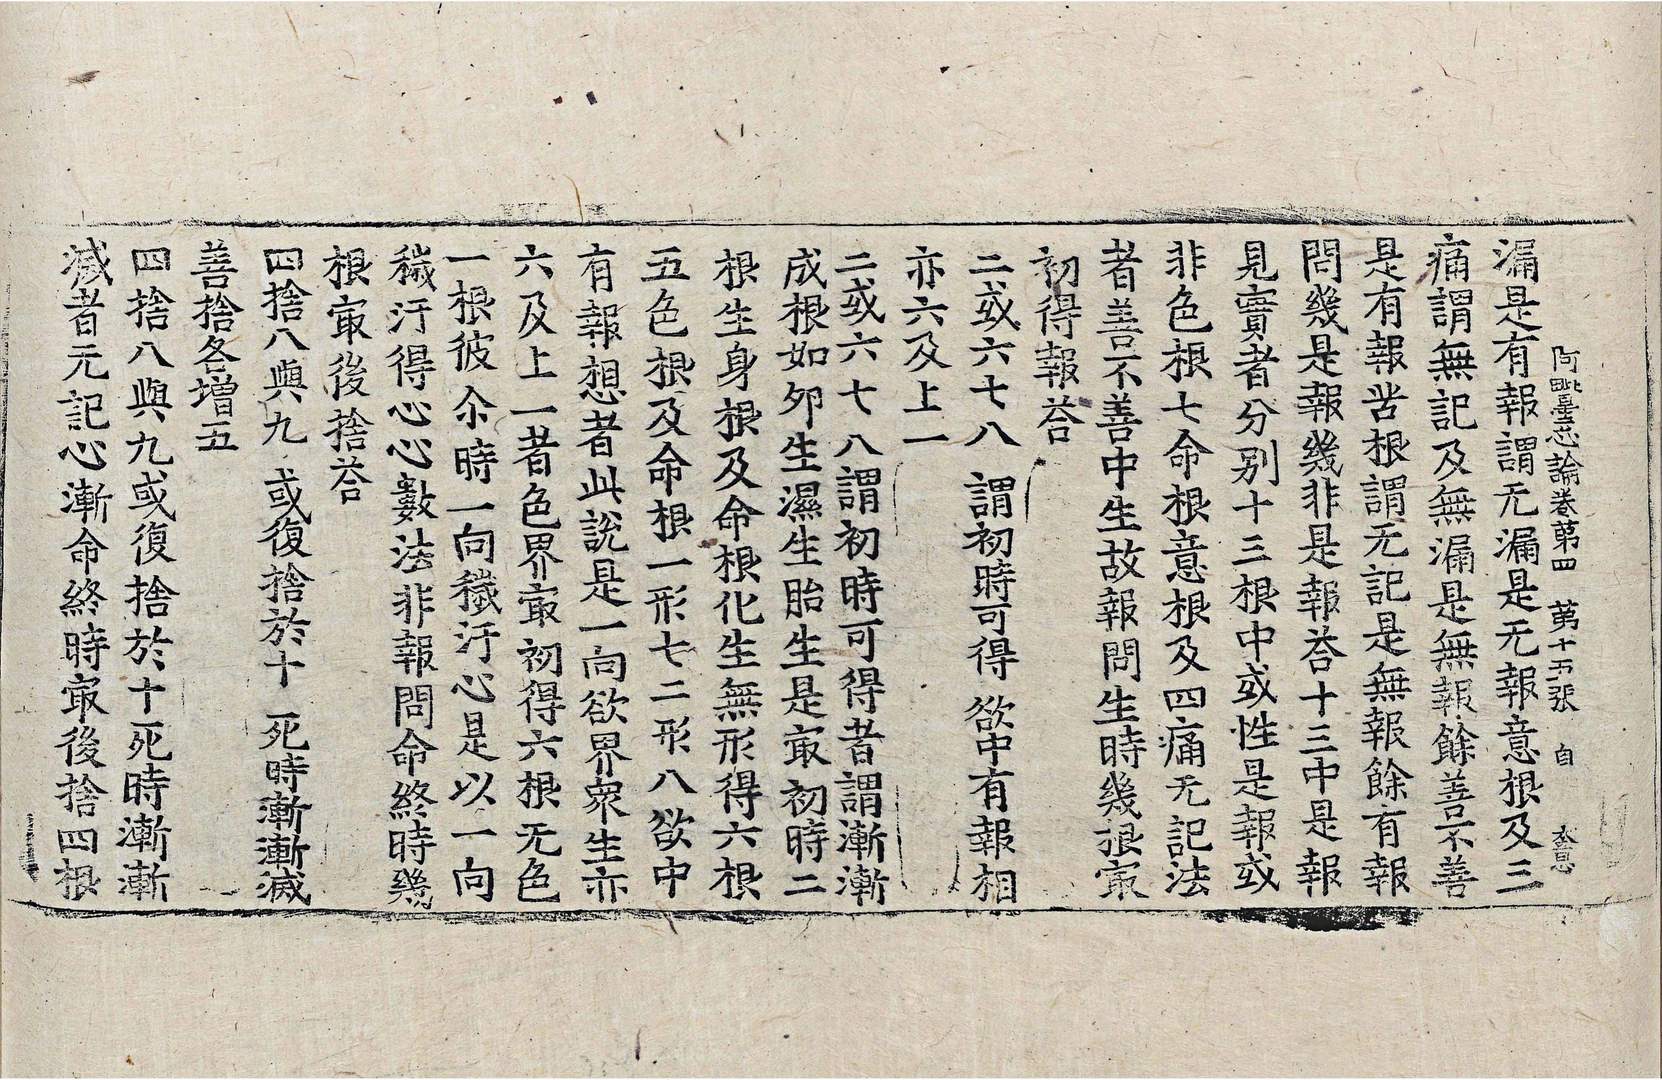 阿毗曇心論卷第四 第十五张 自
漏是有報謂无漏是无報意根及三
痛謂無記及無漏是無報餘善不善
是有報苦根謂无記是無報餘有報
問幾是報幾非是報荅十三中是報
見實者分别十三根中或性是報或
非色根七命根意根及四痛无記法
者善不善中生故報問生時幾根㝡
初得報荅
二或六七八 謂初時可得 欲中有報相
亦六及上一
二或六七八謂初時可得者謂漸漸
成根如卵生濕生胎生是㝡初時二
根生身根及命根化生無形得六根
五色根及命根一形七二形八欲中
有報想者此說是一向欲界衆生亦
六及上一者色界㝡初得六根无色
一根彼尒時一向穢汙心是以一向
穢汙得心心數法非報問命終時幾
根㝡後捨荅
四捨八與九 或復捨於十 死時漸漸滅
善捨各增五
四捨八與九或復捨於十死時漸漸
滅者无記心漸命終時㝡後捨四根